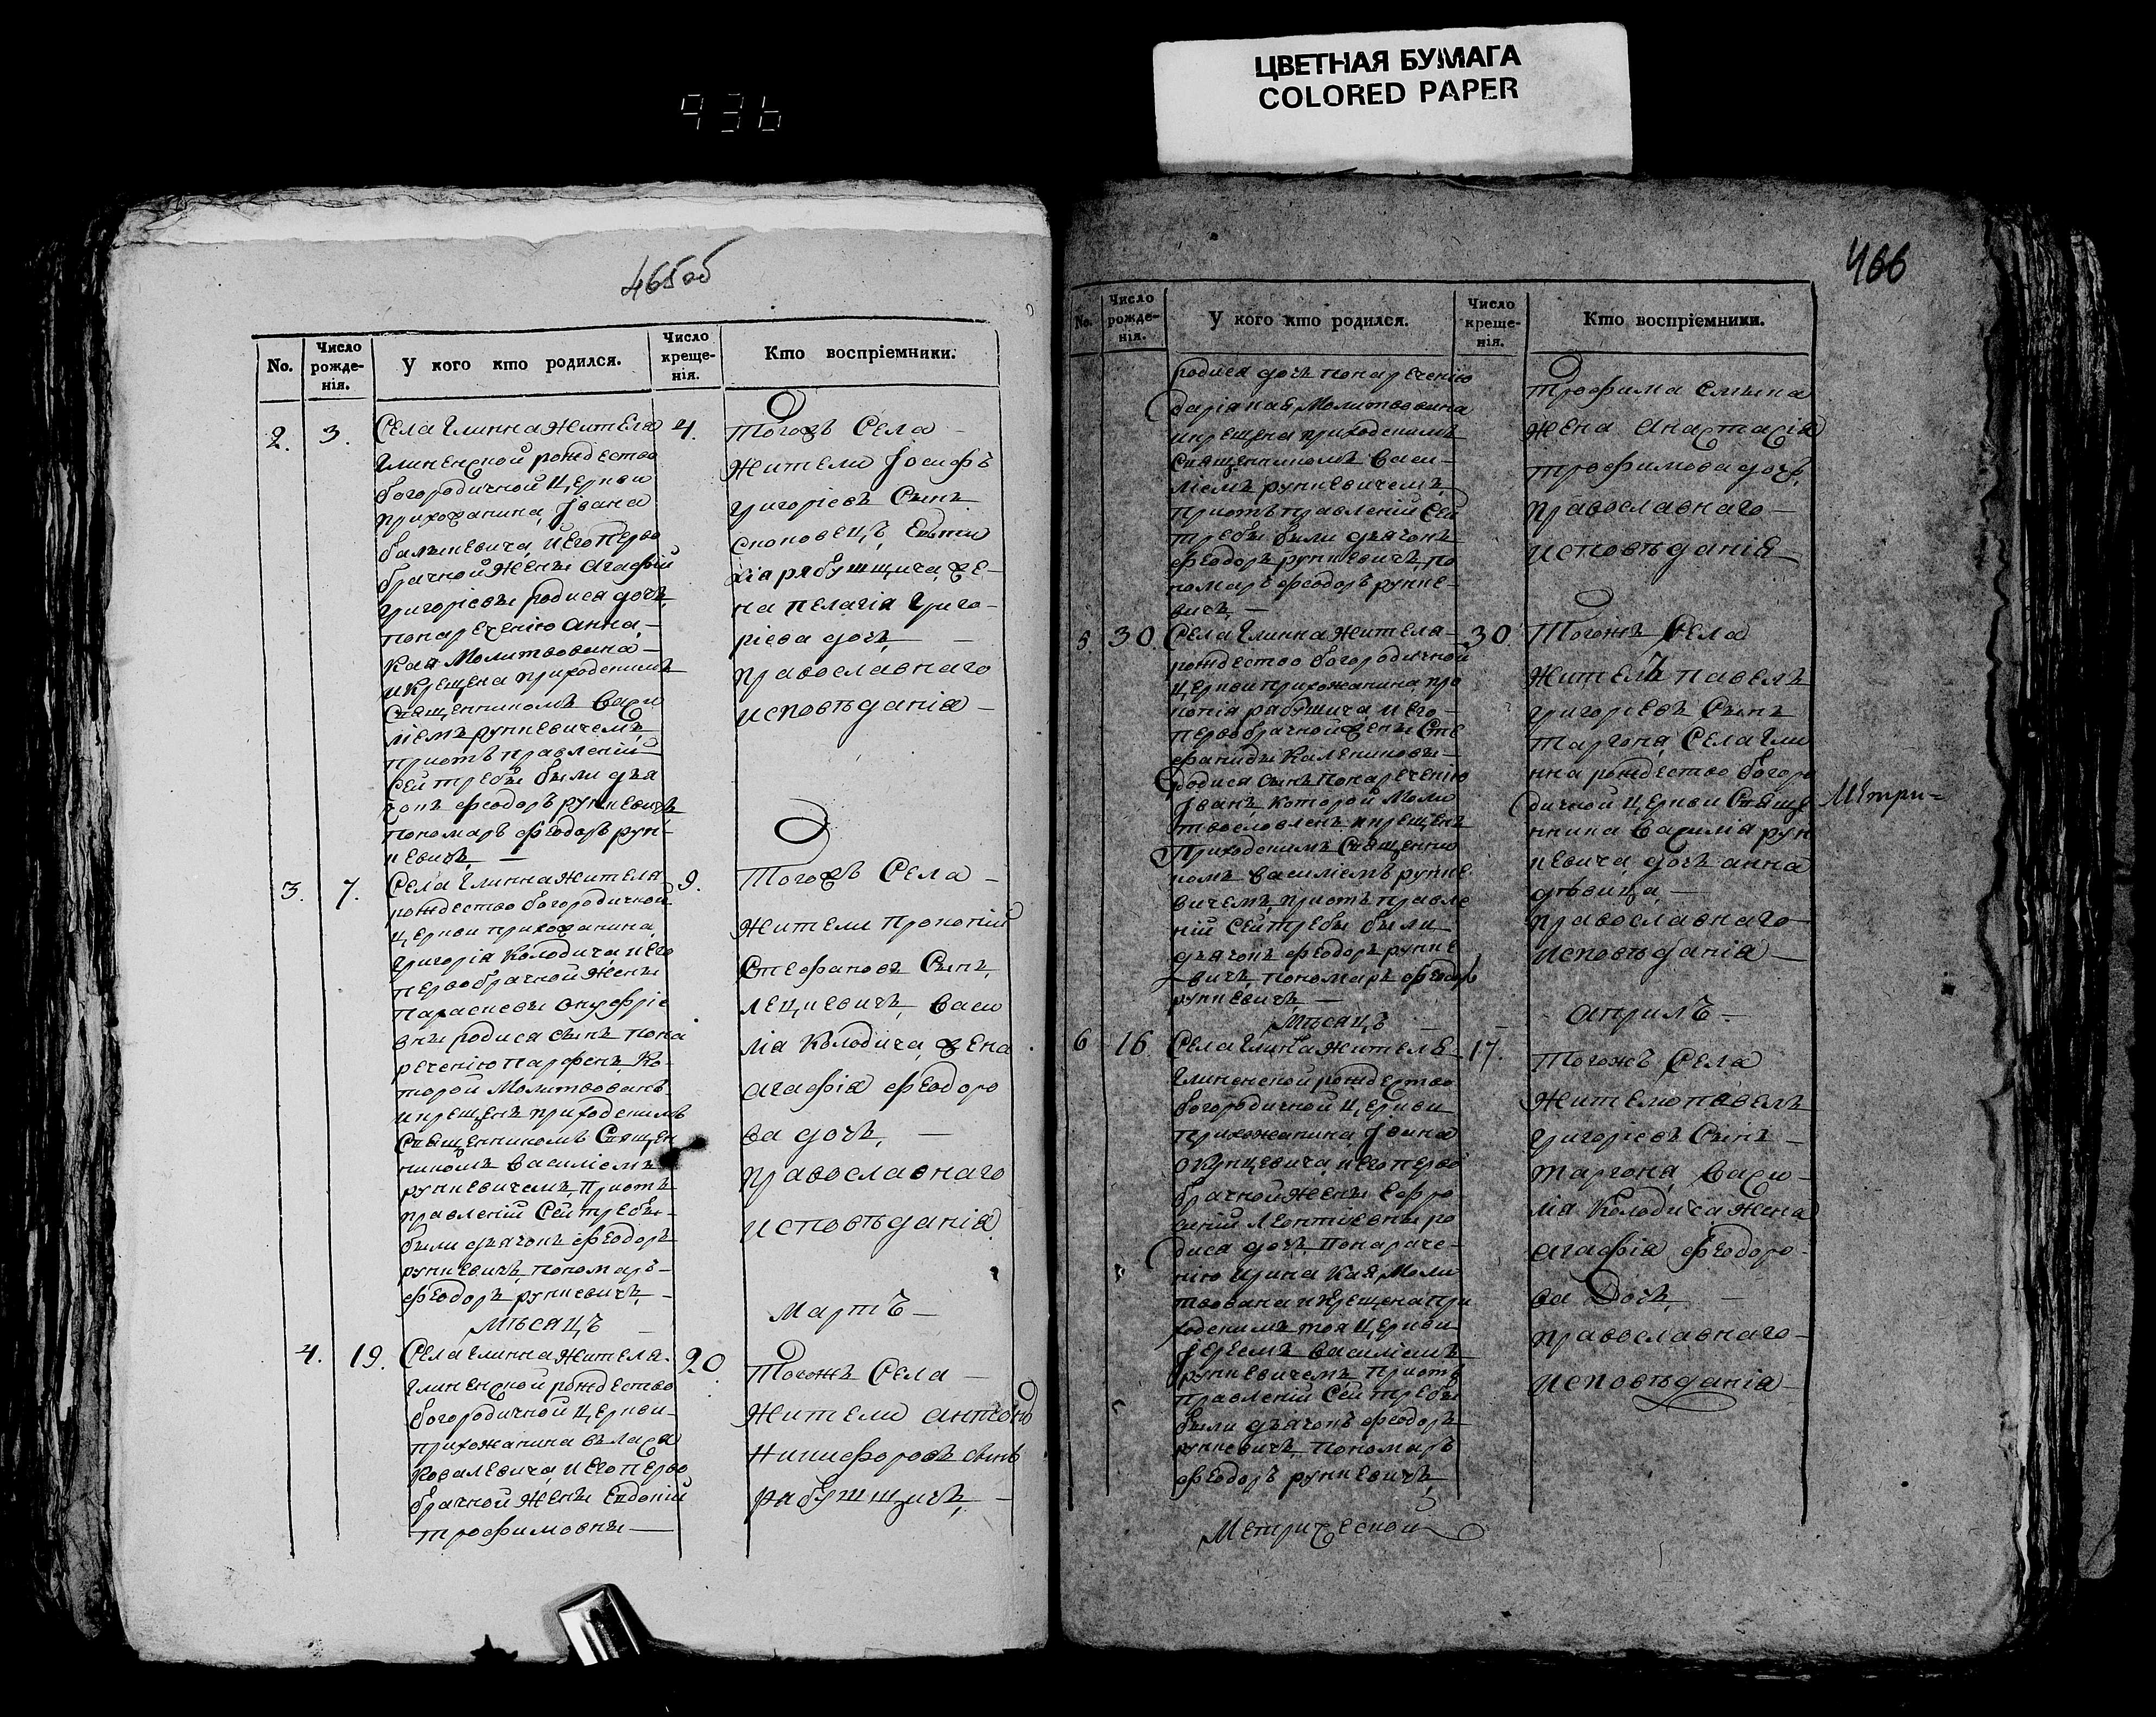 ЦВЕТНАЯ БУМАГА
COLORED PAPER
936
465об
No.
Число рожде-нія.
У кого кто родился.
Число креще-нія.
Кто воспріемники.
2. 3.
Села Глинна жителя
Глиненской рождество
богородичной церкви
прихожанина Іоана
и его перво
брачной жены Агафіи
Григоріевы родися дочь
по наречению Анна,
кая молитвована
и крещена приходскимъ
священникомъ Васи
ліемъ рункевичемъ
при отправленіи
сей требы были дья
чокъ Феодоръ рункевичъ
пономаръ Феодоръ рун-
кевичъ —
4.
Тогожъ Села —
жители Іосифъ
Григоріевъ Сынъ
рябушщича же-
на Пелагія Григо-
ріева дочь —
православнаго
исповѣданія —
3. 7.
Села Глинна жителя
рождество богородичной
церкви прихожанина
Григорія Колодича и его
первобрачной жены
Парасковы Онуфріе
вны родися сынъ по на
речению Парфенъ, ко-
торой молитвованъ
и крещенъ приходскимъ
Священникомъ Священ
никомъ Василіемъ
рункевичемъ, При от
правленіи Сей требы
были дьячокъ Феодоръ
рункевичъ пономаръ
Феодоръ рункевичъ, —
9.
Тогожъ Села —
жители Прокопій
Стефановъ Сынъ,
Васи
лія Колодича жена
Агафія Феодоро
ва дочь, —
православнаго
исповѣданія
Мѣсяцъ — Мартъ —
4. 19.
Села Глинна жителя
Глиненской рождество
богородичной церкви
прихожанина Власа
Ковалевича и его перво
брачной жены Евдокіи
Трофимовны —
20.
Тогожъ Села —
жители Антонъ
Никифоровъ сынъ
рабушщичъ, —
466
No.
Число рожде-нія.
У кого кто родился.
Число креще-нія.
Кто воспріемники.
родися дочь по наречению
Дарія кая молитвована
и крещена приходскимъ
священникомъ Васи-
ліемъ рункевичемъ,
При отправленіи сей
требы были дьячокъ
Феодоръ рункевичъ, по
номаръ Феодоръ рунке-
вичъ —
Трофима
жена Анастасія
Трофимова дочь,
православнаго —
исповѣданія
5. 30.
Села Глинна жителя —
рождество богородичной
церкви прихожанина про
копія рабушича и его
первобрачной жены Сте
фаниды Калениковы —
родися сынъ по наречению
Іванъ, которой моли
твословленъ и крещенъ
Приходскимъ Священни
комъ Василіемъ рунке
вичемъ, при отправле
ніи Сей требы были
дьячокъ Феодоръ рунке
вичъ, пономаръ Феодоръ
рункевичъ —
30.
Тогожъ Села
житель Павелъ
Григоріевъ Сынъ
Таргоня Села Гли
нна рождество богоро
дичной церкви Священ
нника Василія рун
кевича дочь Анна
дѣвица, —
православнаго
исповѣданія —
Метри=
Мѣсяцъ — Априлъ —
6 16.
Села Глинна жителя
Глиненской рождество
богородичной церкви
прихожанина Іоана
Окунцевича и его перво
брачной жены Ефро
синіи Леонтіевны ро
дися дочь по нарече-
нію Ирина кая моли
твована и крещена при
ходскимъ тоя церкви
Іереемъ Василіемъ
рункевичемъ, При от
правленіи Сей требы
были дьячокъ Феодоръ
рункевичъ, пономаръ
Феодоръ рункевичъ,
17.
Тогожъ Села
жители Павелъ
Григоріевъ Сынъ —
Таргоня, Васи-
лія Колодича жена
Агафія Феодоро-
ва Дочь —
православнаго —
исповѣданія —
Метрической